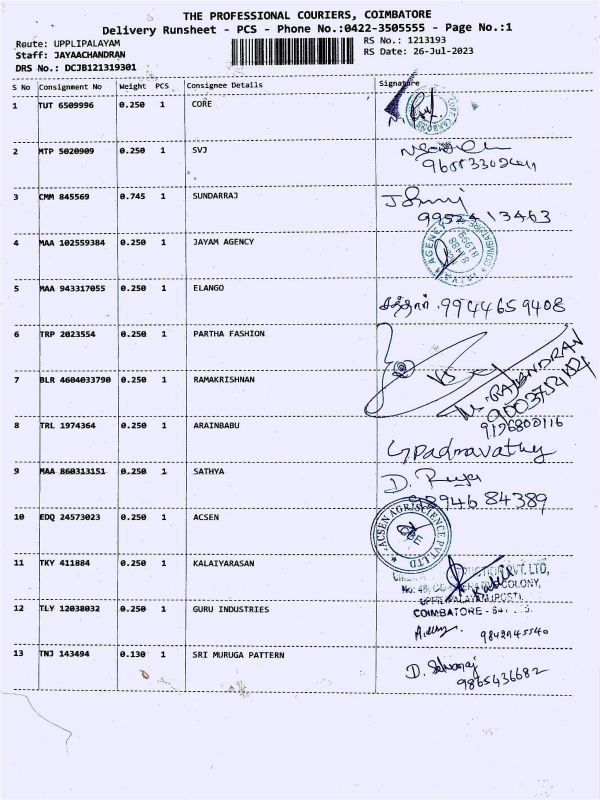 THE PROFESSIONAL COURIERS, COIMBATORE
Delivery Runsheet - PCS - Phone No.:0422-3505555 - Page No.:1
Route: UPPLIPALAYAM
RS No.: 1213193
Staff: JAYAACHANDRAN
RS Date: 26-Jul-2023
DRS No.: DCJB121319301
S No Consignment No Weight PCS Consignee Details Signature
1 TUT 6509996 0.250 1 CORE
2 MTP 5020909 0.250 1 SVJ
3 CMM 845569 0.745 1 SUNDARRAJ
4 MAA 102559384 0.250 1 JAYAM AGENCY
5 MAA 943317055 0.250 1 ELANGO 9944659408
6 TRP 2023554 0.250 1 PARTHA FASHION
7 BLR 4604033790 0.250 1 RAMAKRISHNAN
M. RAJENDRAN
8 TRL 1974364 0.250 1 ARAINBABU
9126800116
G Padmavathy
9 MAA 860313151 0.250 1 SATHYA
98946 84389
10 EDQ 24573023 0.250 1 ACSEN
ACSEN AGRISCIENCE PVT LTD
11 TKY 411884 0.250 1 KALAIYARASAN
PVT. LTD,
COLONY,
12 TLY 12038032 0.250 1 GURU INDUSTRIES
COIMBATORE -
9842945540
13 TNJ 143494 0.130 1 SRI MURUGA PATTERN
D. Selvaraj
9865436682